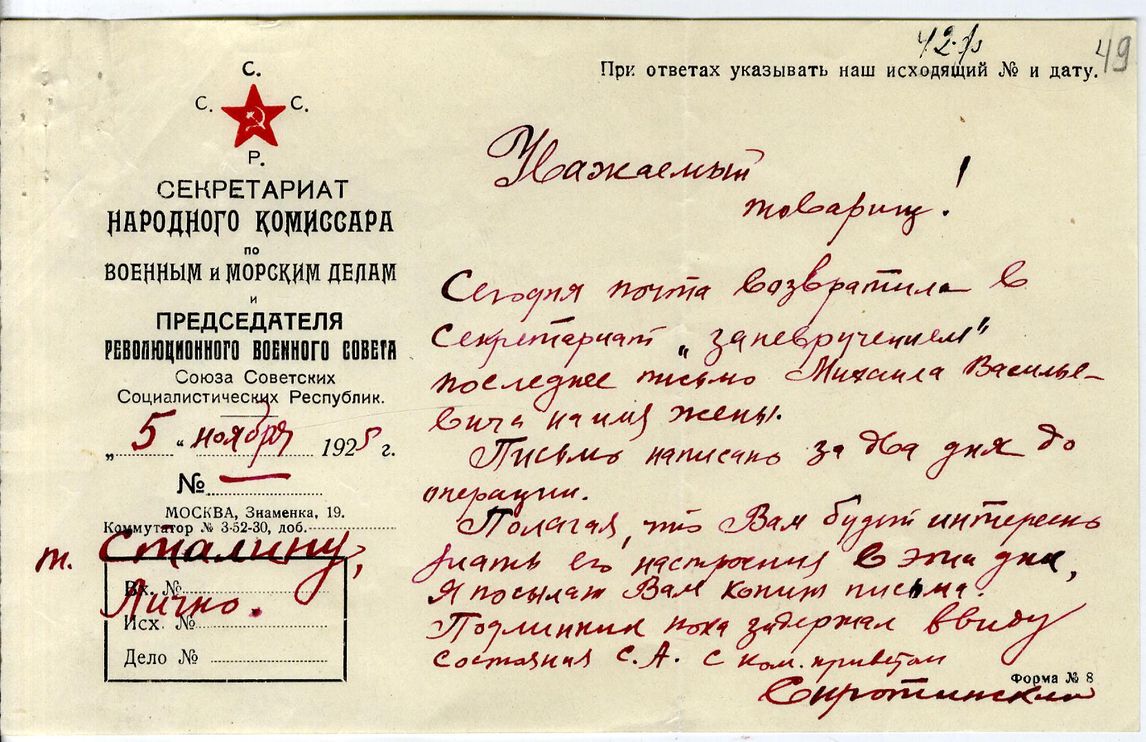 42-А
49
При ответах указывать наш исходящий № и дату.
С.
С. С.
Р.
СЕКРЕТАРИАТ
НАРОДНОГО КОМИССАРА
по
ВОЕННЫМ и МОРСКИМ ДЕЛАМ
и
ПРЕДСЕДАТЕЛЯ
РЕВОЛЮЦИОННОГО ВОЕННОГО СОВЕТА
Союза Советских
Социалистических Республик.
„5" ноября 1925 г.
№
МОСКВА, Знаменка, 19.
Коммутатор № 3-52-30, доб.
т. Сталину,
Вх. №
Лично.
Исх. №
Дело №
Уважаемый
товарищ!
Сегодня почта возвратила в
секретариат „заневручением"
последнее письмо Михаила Василье-
вича на имя жены.
Письмо написано за два дня до
операции.
Полагая, что Вам будет интересно
знать его настроения в эти дни,
я посылаю Вам копию письма.
Подлинник пока задержал ввиду
состояния С. А. с ком. приветом
Форма № 8
Сиротинский